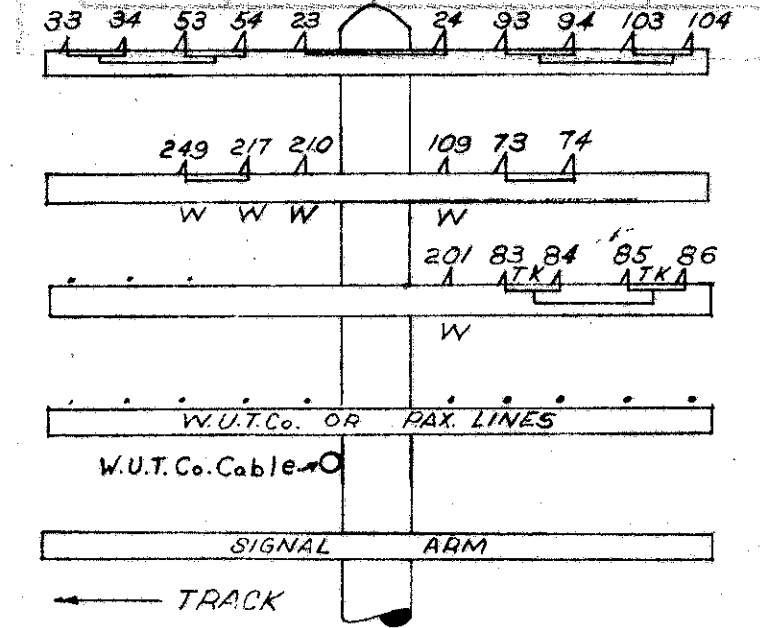 33 34 53 54 23 24 93 94 103 104
249 217 210 109 73 74
W W W W
201 83 84 85 86
TK TK
W
W.U.T.Co. OR PAX. LINES
W.U.T.Co.Cable
SIGNAL ARM
TRACK